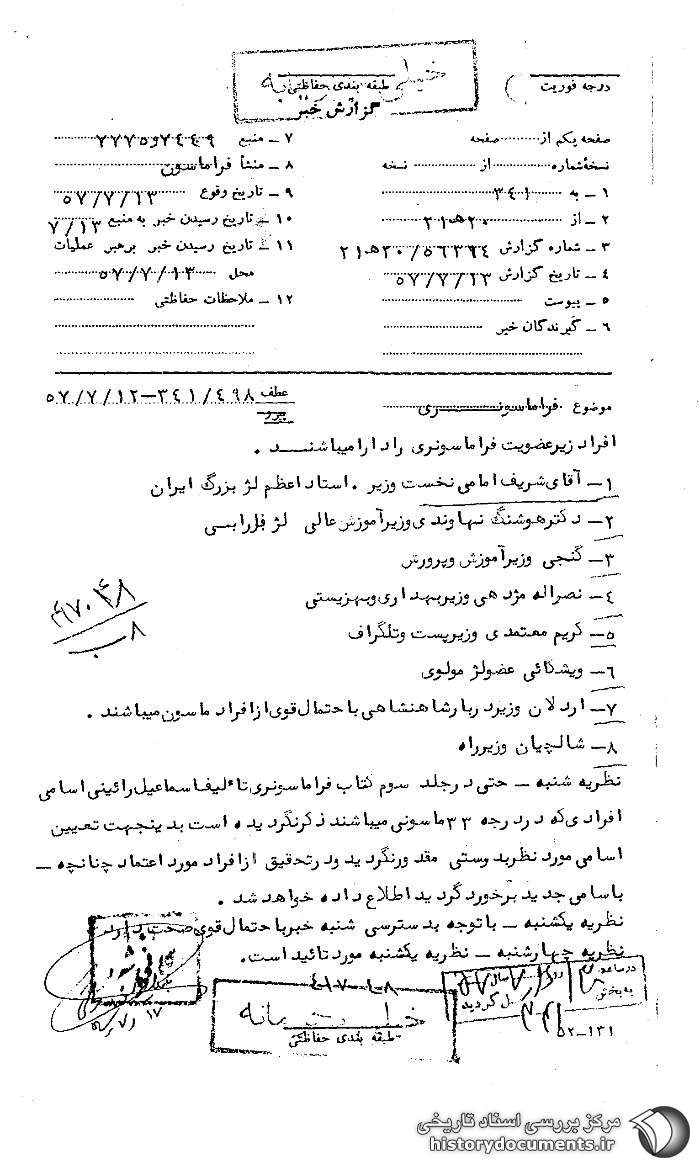 خیلی محرمانه
درجه فوریت
طبقه بندی حفاظتی
گزارش خبر
صفحه یکم از صفحه
نسخه شماره از نسخه
۱ - به ۳۴۱
۲ - از ۲۰ه۲۱
۳ - شماره گزارش
۴ - تاریخ گزارش ۵۷/۷/۱۳
۵ - پیوست
۶ - گیرندگان خبر
۷ - منبع
۸ - منشأ فراماسون
۹ - تاریخ وقوع ۵۷/۷/۱۳
۱۰ - تاریخ رسیدن خبر به منبع ۷/۱۳
۱۱ - تاریخ رسیدن خبر برهبر عملیات
محل ۵۷/۷/۱۳
۱۲ - ملاحظات حفاظتی
موضوع فراماسونری
عطف ۳۴۱/۴۹۸-۵۷/۷/۱۲
پیرو
افراد زیر عضویت فراماسونری را دارا میباشند .
۱- آقای شریف امامی نخست وزیر . استاد اعظم لژ بزرگ ایران
۲- دکتر هوشنگ نهاوندی وزیر آموزش عالی لژ فارابی
۳- گنجی وزیر آموزش وپرورش
۴- نصراله مژدهی وزیر بهداری وبهزیستی
۵- کریم معتمدی وزیر پست وتلگراف
۶- ویشکائی عضو لژ مولوی
۷- اردلان وزیر دربار شاهنشاهی با حتمال قوی از افراد ماسون میباشند .
۸- شالچیان وزیر راه
نظریه شنبه - حتی در جلد سوم کتاب فراماسونری تألیف اسماعیل رائینی اسامی
افرادی که در درجه ۳۳ ماسونی میباشند ذکر نگردیده است بدینجهت تعیین
اسامی مورد نظر بدوستی مقدور نگردید ودر تحقیق از افراد مورد اعتماد چنانچه -
با سامی جدید برخورد گردید اطلاع داده خواهد شد .
نظریه یکشنبه - با توجه بدسترسی شنبه خبر با حتمال قوی صحت دارد
نظریه چهارشنبه - نظریه یکشنبه مورد تائید است .
خیلی محرمانه
طبقه بندی حفاظتی
۵۲-۱۳۱
مرکز بررسی اسناد تاریخی
historydocuments.ir